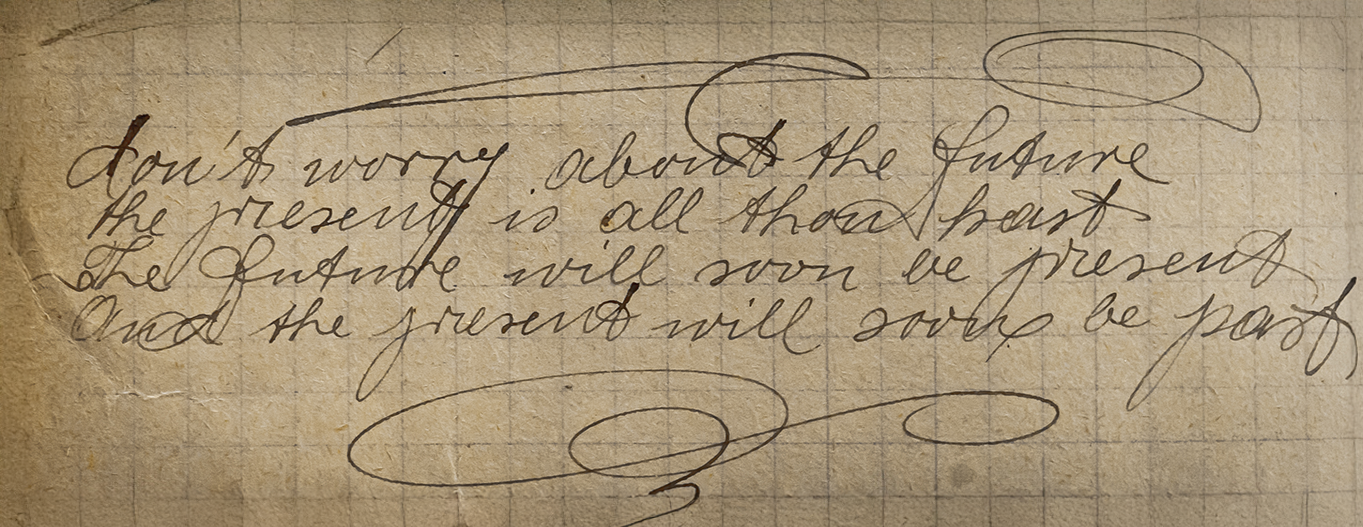 don't worry about the future
the present is all thou hast
The future will soon be present
And the present will soon be past